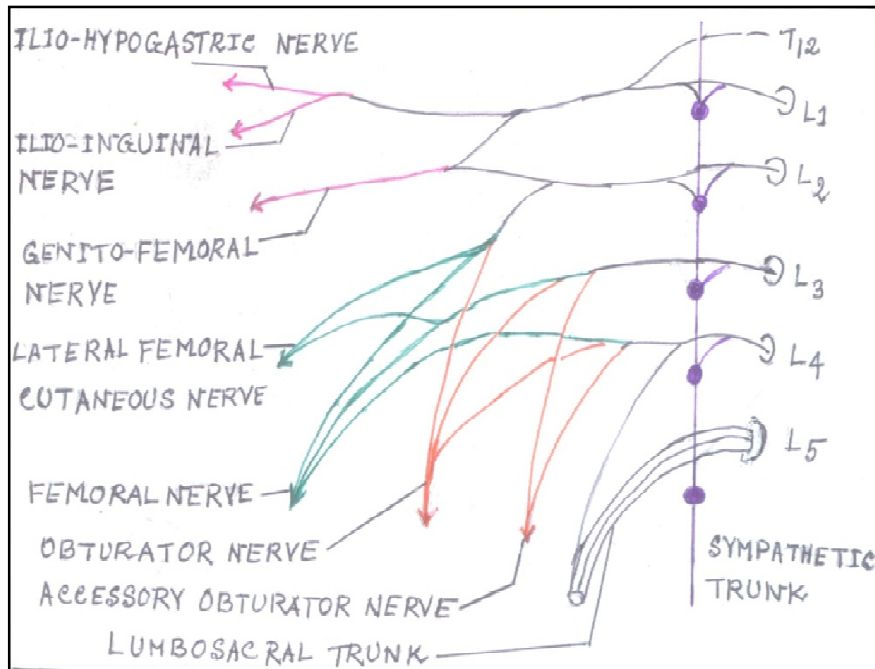 ILIO-HYPOGASTRIC NERVE
T12
L1
ILIO-INGUINAL
NERVE
L2
GENITO-FEMORAL
NERVE
L3
LATERAL FEMORAL
CUTANEOUS NERVE
L4
L5
FEMORAL NERVE
OBTURATOR NERVE
ACCESSORY OBTURATOR NERVE
LUMBOSACRAL TRUNK
SYMPATHETIC
TRUNK